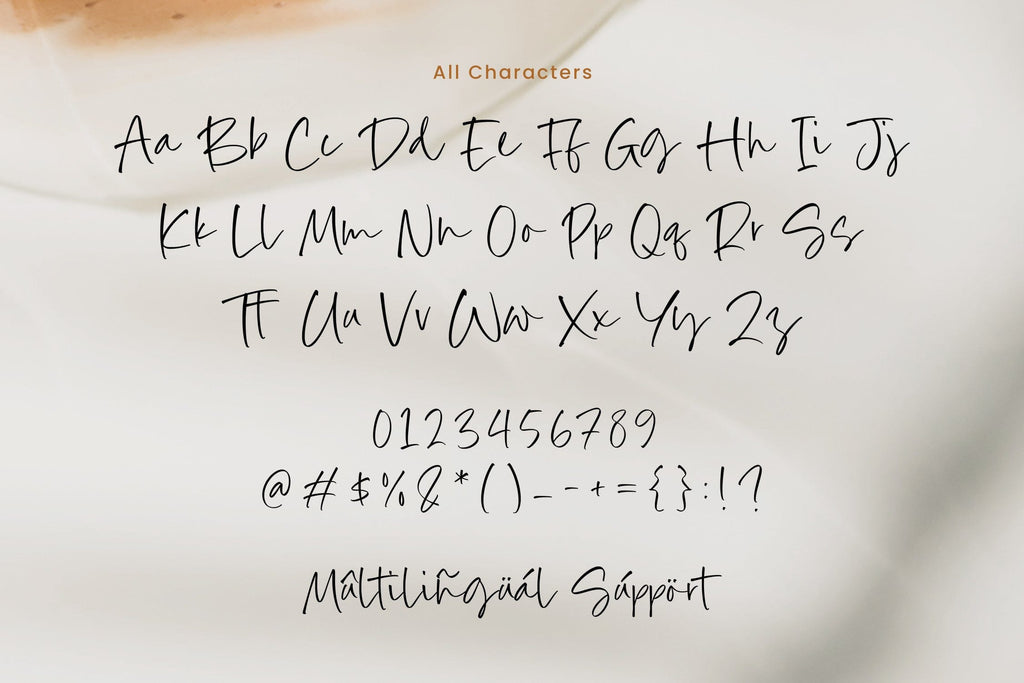 All Characters
Aa Bb Cc Dd Ee Ff Gg Hh Ii Jj
Kk Ll Mm Nn Oo Pp Qq Rr Ss
Tt Uu Vv Ww Xx Yy Zz
0123456789
@#$%&*()_-+={}:!?
Mûltïlïñgüál Sáppört